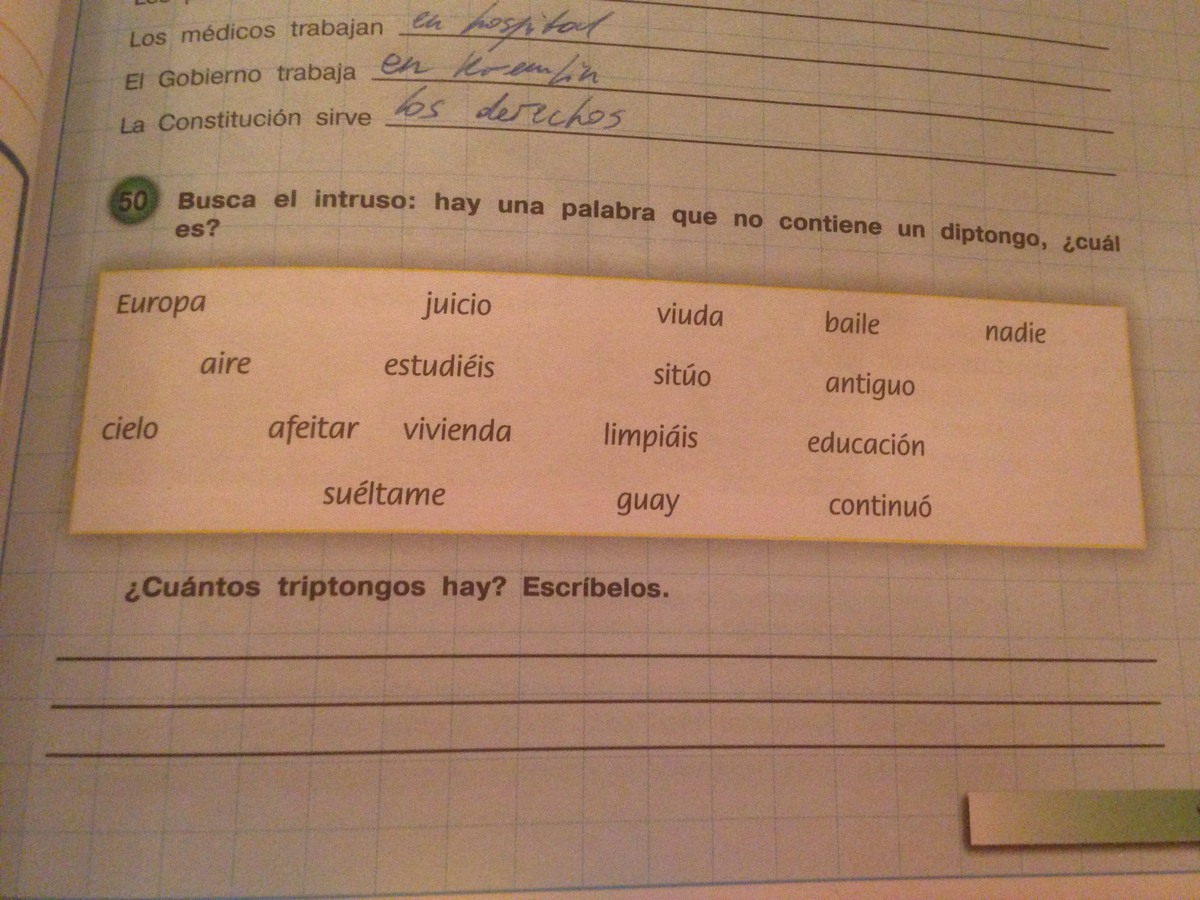 Los médicos trabajan en hospital
El Gobierno trabaja en Kremlin
La Constitución sirve los derechos
50 Busca el intruso: hay una palabra que no contiene un diptongo, ¿cuál
es?
Europa juicio viuda baile nadie
aire estudiéis sitúo antiguo
cielo afeitar vivienda limpiáis educación
suéltame guay continuó
¿Cuántos triptongos hay? Escríbelos.